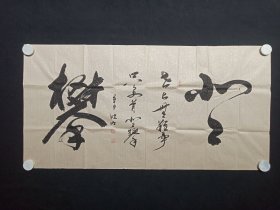 登攀
世上無難事
只要肯登攀